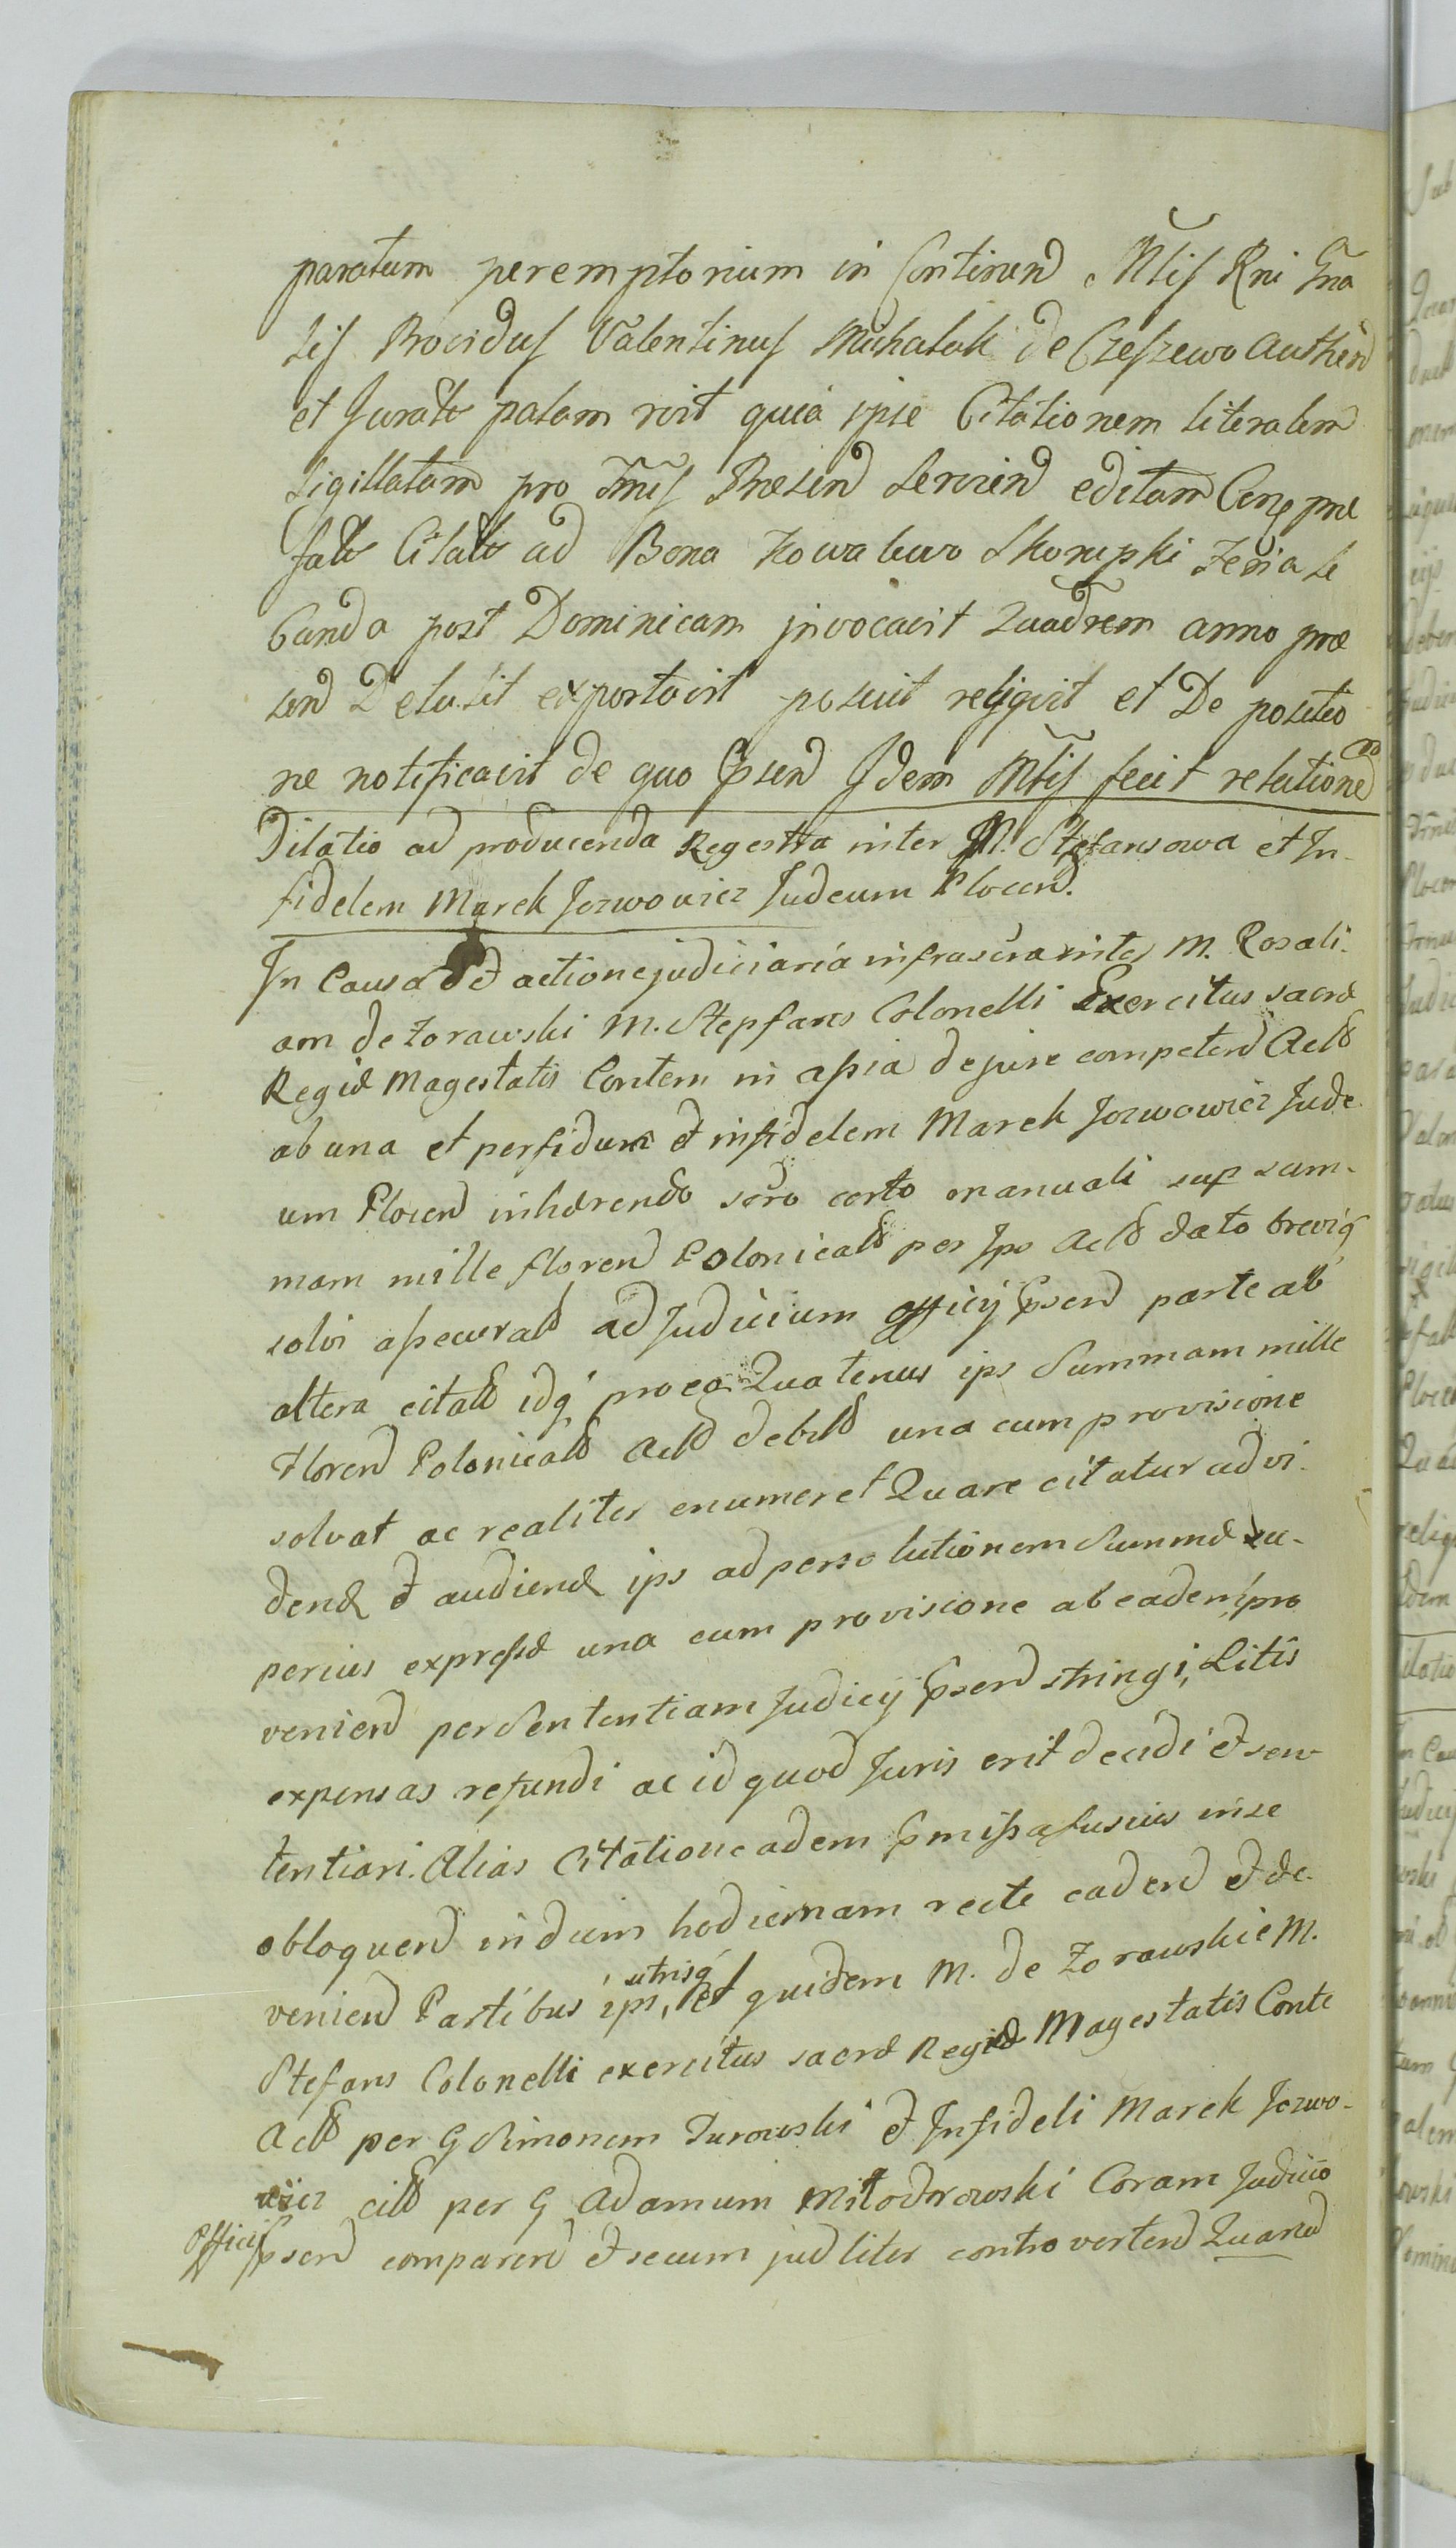 paratum peremptorium in Continend Mtis Rni Gna
lis Providus Valentinus Michalak de Czeszewo Authen
et Jurato palam rvit quia ipse Citationem literalem
sigillatam pro Tmis Praesend serviend editam Con prae
fato Citato ad Bona Kowalewo Skorupki Feria se
cunda post Dominicam invocavit Quadrem anno prae
send Detulit exportavit posuit religvit et De positio
ne notificavit de quo Psend Jdem Mtis fecit relatione
Dilatio ad producenda Regestra inter M. Stefansowa et In-
fidelem Marek Jozwowicz Judeum Plocend.
In Causa et actione judiciaria infrascra inter M. Rosali-
am de Zorawski M. Stepfans Colonelli Exercitus sacrae
Regiae Magestatis Contem in assia de jure competend Acto
ab una et perfidum et infidelem Marek Jozwowicz Jude
um Plocend inhaerendo scro certo manuali sup sum-
mam mille florend Polonicalo per Ips Acto dato breviq
solvi assecurato ad Judicium officij Psend parte ab
altera citato idq pro eo Quatenus ips Summam mille
Florend Polonicalo Acto debito una cum provisione
solvat ac realiter enumeret Quare citatur ad vi-
dend et audiend ips ad persolutionem Summae su-
perius expressae una cum provisione ab eadem pro
veniend per Sententiam Judicij Psend stringi, Litis
expensas refundi ac id quod Juris erit decidi et sen-
tentiari. Alias Citatione adem Pmissa fusius in se
obloquend in diem hodiernam recte cadend et de-
veniend Partibus ips, utrisq et quidem M. de Zorawskie M.
Stefans Colonelli exercitus sacrae Regiae Magestatis Conte
Acto per G Simonem Zurowski et Infideli Marek Jozwo-
wicz cito per G Adamum Mitodrowski Coram Judicio
Officij Psend comparend et secum judliter controvertend Quarud